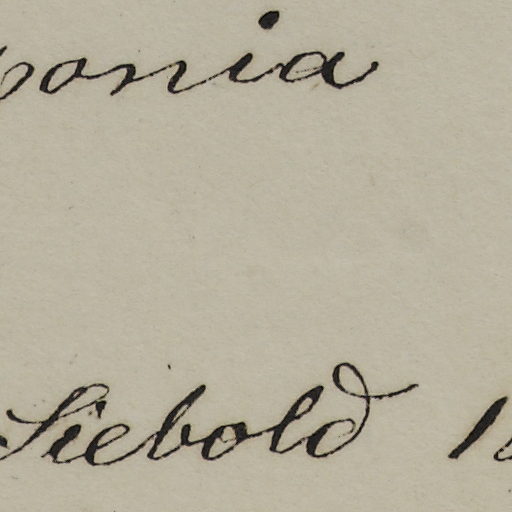 ponia
Siebold 1